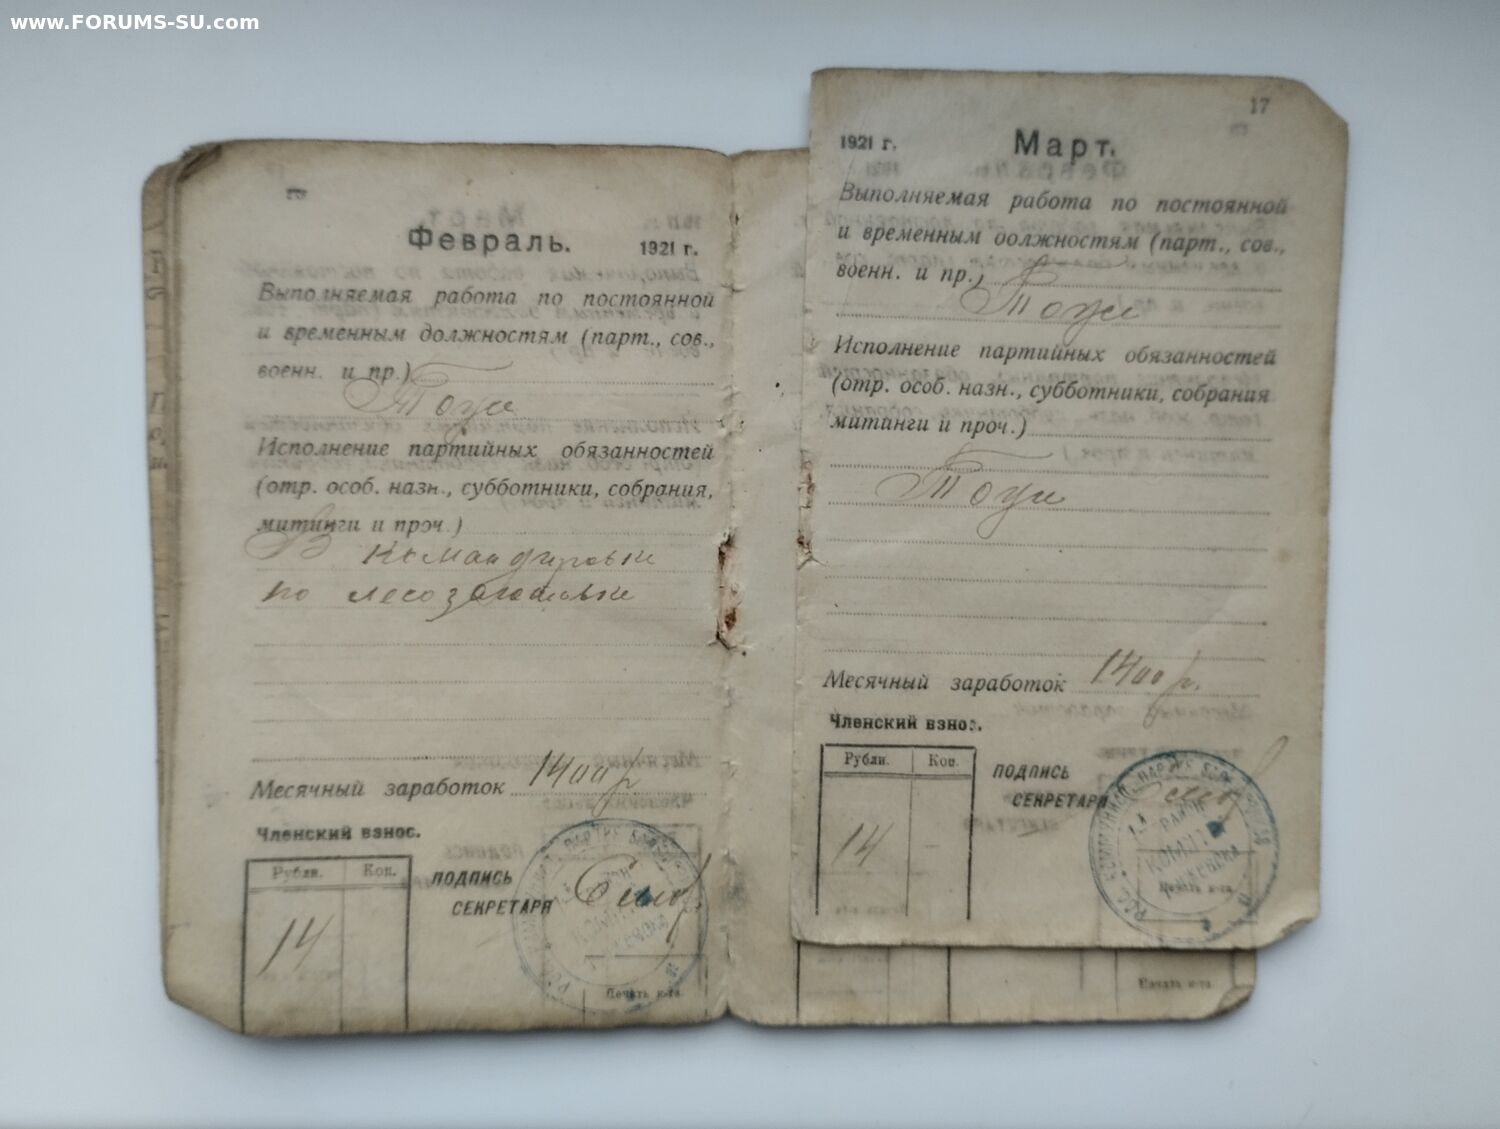 www.FORUMS-SU.com
Февраль. 1921 г.
Выполняемая работа по постоянной
и временным должностям (парт., сов.,
военн. и пр.)
Исполнение партийных обязанностей
(отр. особ. назн., субботники, собрания,
митинги и проч.)
В командировки
по лесозаготовки
Месячный заработок 1400 р
Членский взнос.
Рубли. Коп.
14
подпись
секретаря
Печать к-та
17
1921 г. Март.
Выполняемая работа по постоянной
и временным должностям (парт., сов.,
военн. и пр.)
Исполнение партийных обязанностей
(отр. особ. назн., субботники, собрания
митинги и проч.)
Месячный заработок 1400 р.
Членский взнос.
Рубли. Коп.
14 —
подпись
секретаря
Печать к-та
Печать к-та